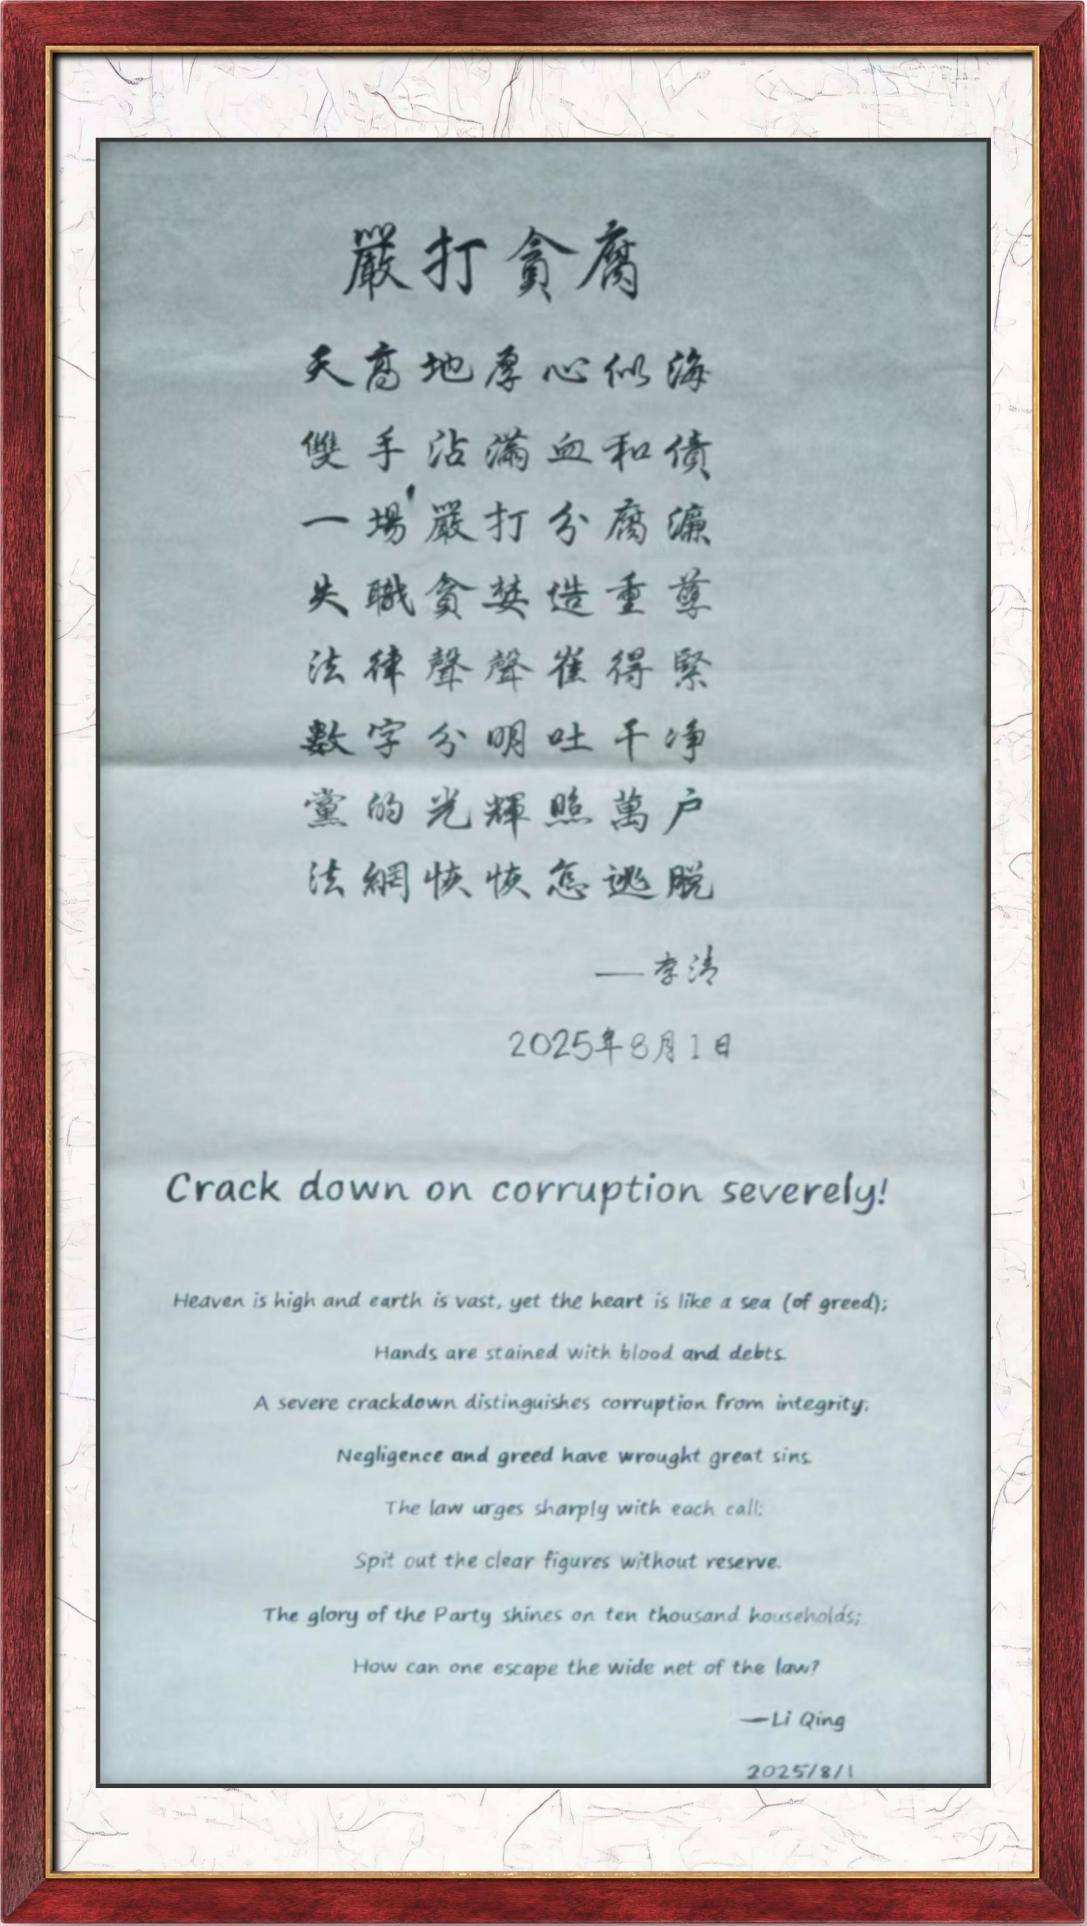 嚴打貪腐
天高地厚心似海
雙手沾滿血和債
一場嚴打分腐濂
失職貪婪造重孽
法律聲聲崔得緊
數字分明吐干净
黨的光輝照萬户
法網恢恢怎逃脱
—李清
2025年8月1日
Crack down on corruption severely!
Heaven is high and earth is vast, yet the heart is like a sea (of greed);
Hands are stained with blood and debts.
A severe crackdown distinguishes corruption from integrity;
Negligence and greed have wrought great sins.
The law urges sharply with each call;
Spit out the clear figures without reserve.
The glory of the Party shines on ten thousand households;
How can one escape the wide net of the law?
—Li Qing
2025/8/1